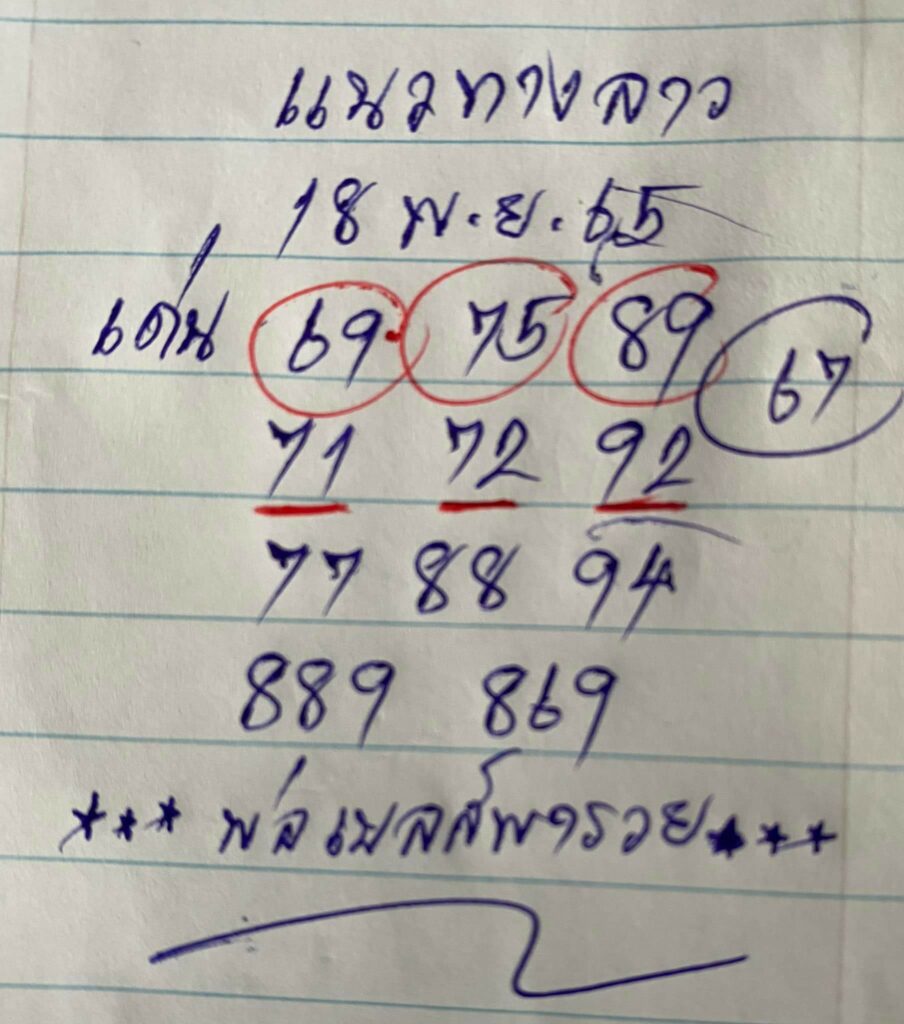 แนวทางลาว
18 พ.ย. 65
เด่น 69 75 89 67
71 72 92
77 88 94
889 869
*** พ่อเมลส์พารวย ***